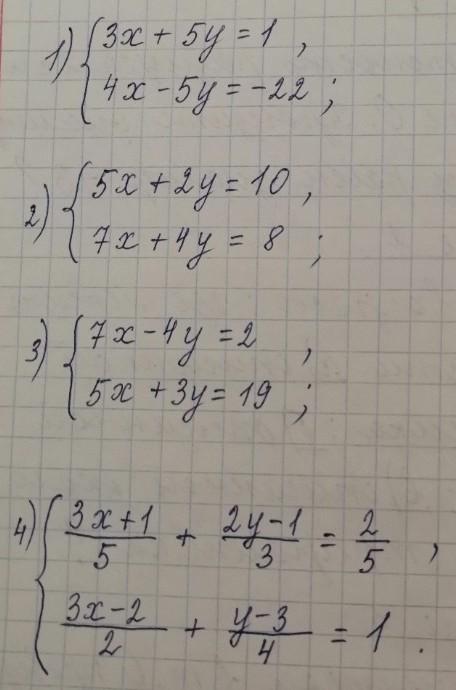 1) { 3x + 5y = 1 ,
4x - 5y = -22 ;
2) { 5x + 2y = 10 ,
7x + 4y = 8 ;
3) { 7x - 4y = 2 ,
5x + 3y = 19 ;
4) { (3x+1)/5 + (2y-1)/3 = 2/5 ,
(3x-2)/2 + (y-3)/4 = 1 .